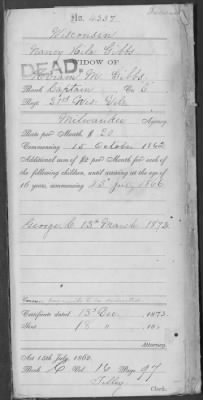 No. 4337
Wisconsin
Nancy Gibbs
WIDOW OF
DEAD.
M. Gibbs
Rank Captain Co. E
Regt. 37th Wis. Vols
Milwaukee Agency
Rate per Month $ 20
Commencing 15 October 1862
Additional sum of $2 per Month for each of
the following children, until arriving at the age of
16 years, commencing 25 July 1866
George C. 13th March 1872
Certificate dated 13 Dec. 1873
Sent 18 " 187
Attorney.
Act 14th July, 1862.
Book Vol. 16 Page 97
Tilley
Clerk.